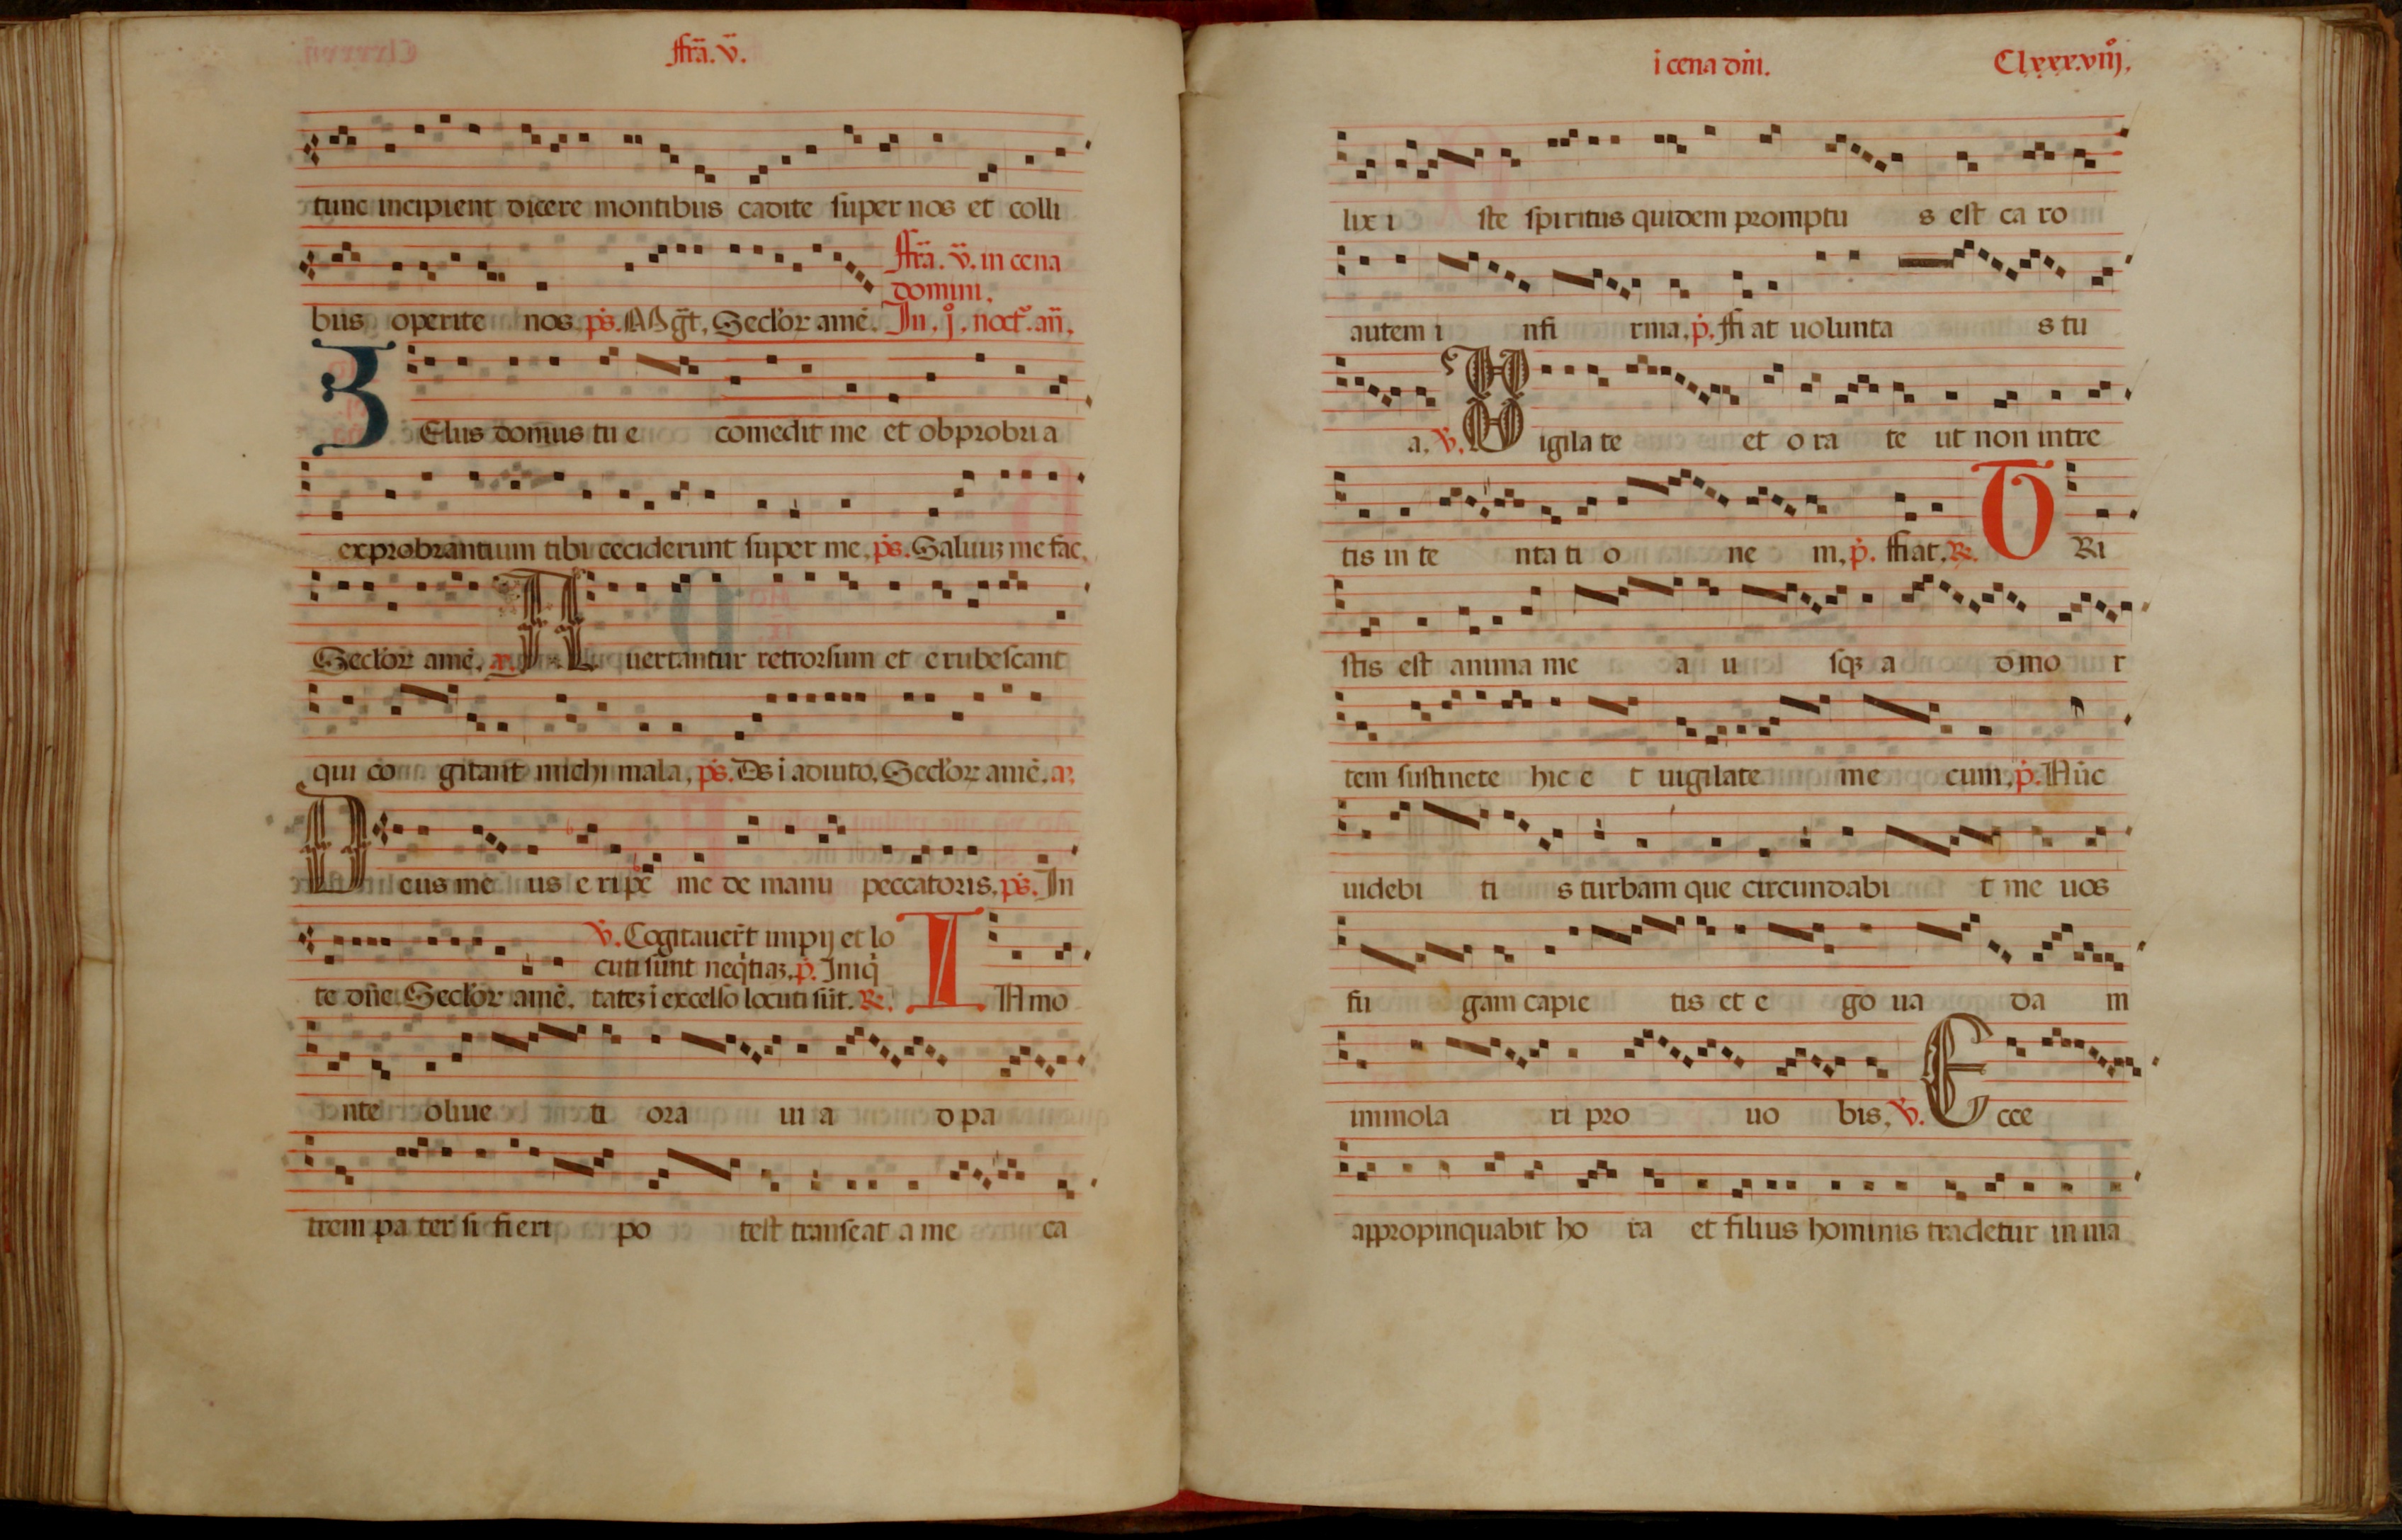 ffrã. v̄.
tunc incipient dicere montibus cadite super nos et colli
ffrã. v̄. in cena
domini.
bus operite nos. p̄s. Mḡt. Seclor amē. In. j̊. noct᷑. añ.
ZElus domus tu e comedit me et obprobri a
exprobrantium tibi ceciderunt super me. p̄s. Saluuz me fac.
Seclor amē. a. Auertantur retrorsum et erubescant
qui co gitant michi mala. p̄s. Ds i adiuto. Seclor amē. a.
Deus me us e ripe me de manu peccatoris. p̄s. In
v̄. Cogitauer̄t impij et lo
cuti sunt neq̄tiaz. p̄. Iniq̄
te dñe. Seclor amē. tatez i excelso locuti sūt. R. IN mo
nte oliue ti ora ui a d pa
trem pa ter si fi eri po test transeat a me ca
i cena dm̄i. Clxxx.viiij̊.
lix i ste spiritus quidem promptu s est ca ro
autem i nfi rma. p̄. ffi at uolunta s tu
a. v̄. Uigila te et o ra te ut non intre
tis in te nta ti o ne m. p̄. ffiat. R. TRi
stis est anima me a u sqz a dmo r
tem sustinete hic e t uigilate me cum. p̄. Nūc
uidebi ti s turbam que circundabi t me uos
fu gam capie tis et e go ua da m
immola ri pro uo bis. v̄. Ecce
appropinquabit ho ra et filius hominis tradetur in ma